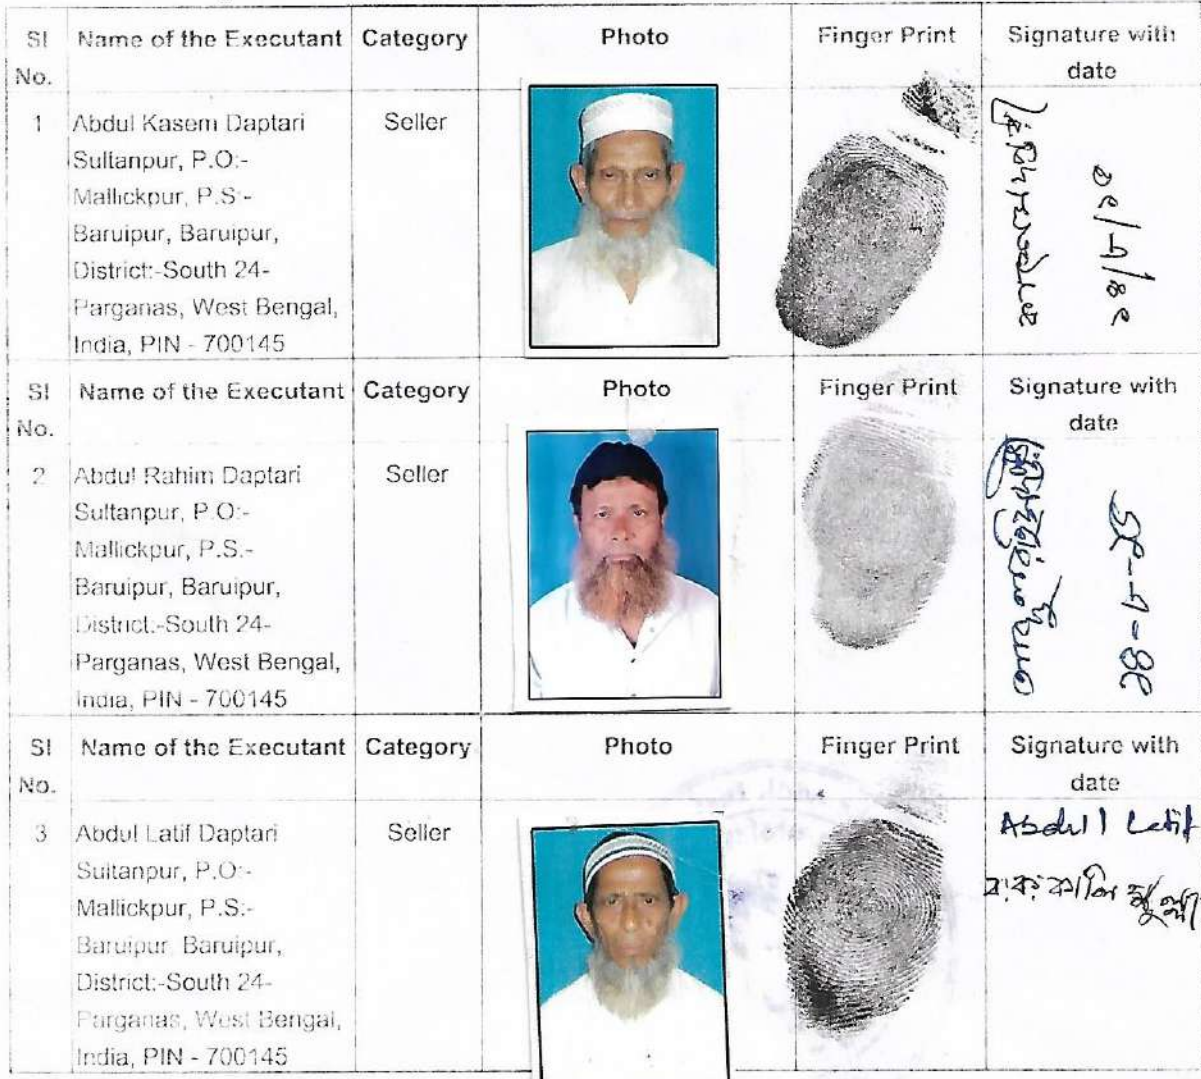 Sl No. Name of the Executant Category Photo Finger Print Signature with date
1 Abdul Kasem Daptari Seller
Sultanpur, P.O:-
Mallickpur, P.S:-
Baruipur, Baruipur,
District:-South 24-
Parganas, West Bengal,
India, PIN - 700145
Sl No. Name of the Executant Category Photo Finger Print Signature with date
2 Abdul Rahim Daptari Seller
Sultanpur, P.O:-
Mallickpur, P.S.-
Baruipur, Baruipur,
District:-South 24-
Parganas, West Bengal,
India, PIN - 700145
Sl No. Name of the Executant Category Photo Finger Print Signature with date
3 Abdul Latif Daptari Seller Abdul Latif
Sultanpur, P.O:-
Mallickpur, P.S:-
Baruipur, Baruipur,
District:-South 24-
Parganas, West Bengal,
India, PIN - 700145